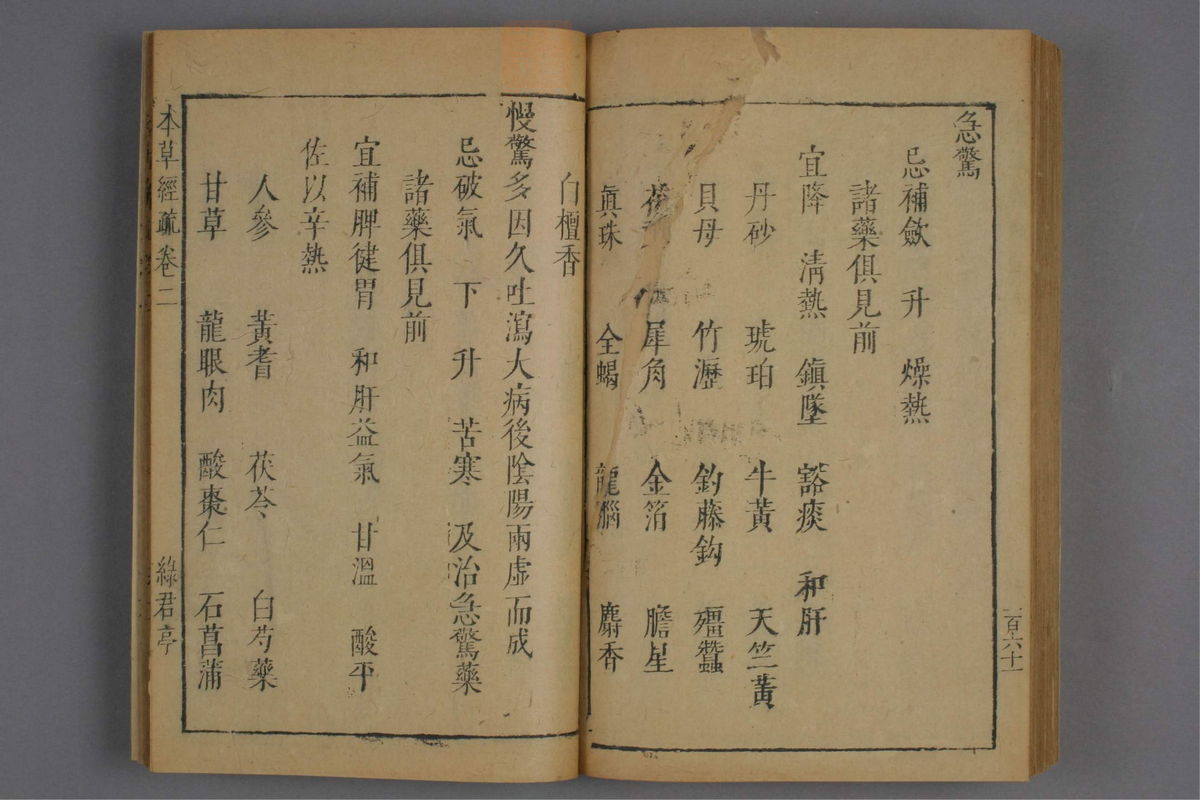 急驚
忌補斂 升 燥熱
諸藥俱見前
宜降 清熱 鎮墜 豁痰 和肝
丹砂 琥珀 牛黃 天竺黃
貝母 竹瀝 釣藤鈎 殭蠶
犀角 金箔 膽星
眞珠 全蝎 龍腦 麝香
一百六十一
白檀香
慢驚多因久吐瀉大病後陰陽兩虛而成
忌破氣 下 升 苦寒 及治急驚藥
諸藥俱見前
宜補脾健胃 和肝益氣 甘溫 酸平
佐以辛熱
人參 黃耆 茯苓 白芍藥
甘草 龍眼肉 酸棗仁 石菖蒲
本草經疏卷二 綠君亭